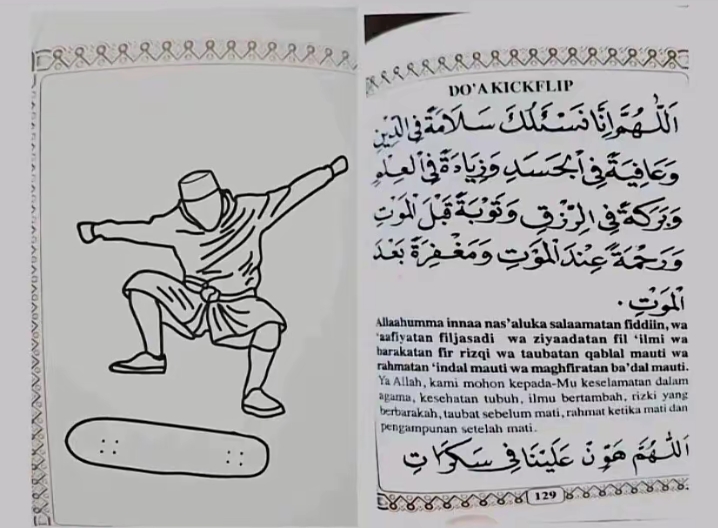 DO'A KICKFLIP
اَللّٰهُمَّ اِنَّا نَسْئَلُكَ سَلَامَةً فِى الدِّيْنِ
وَعَافِيَةً فِى الْجَسَدِ وَزِيَادَةً فِى الْعِلْمِ
وَبَرَكَةً فِى الرِّزْقِ وَتَوْبَةً قَبْلَ الْمَوْتِ
وَرَحْمَةً عِنْدَ الْمَوْتِ وَمَغْفِرَةً بَعْدَ
الْمَوْتِ ٠
Allaahumma innaa nas'aluka salaamatan fiddiin, wa
'aafiyatan filjasadi wa ziyaadatan fil 'ilmi wa
barakatan fir rizqi wa taubatan qablal mauti wa
rahmatan 'indal mauti wa maghfiratan ba'dal mauti.
Ya Allah, kami mohon kepada-Mu keselamatan dalam
agama, kesehatan tubuh, ilmu bertambah, rizki yang
berbarakah, taubat sebelum mati, rahmat ketika mati dan
pengampunan setelah mati.
اَللّٰهُمَّ هَوِّنْ عَلَيْنَا فِى سَكَرَاتِ
129